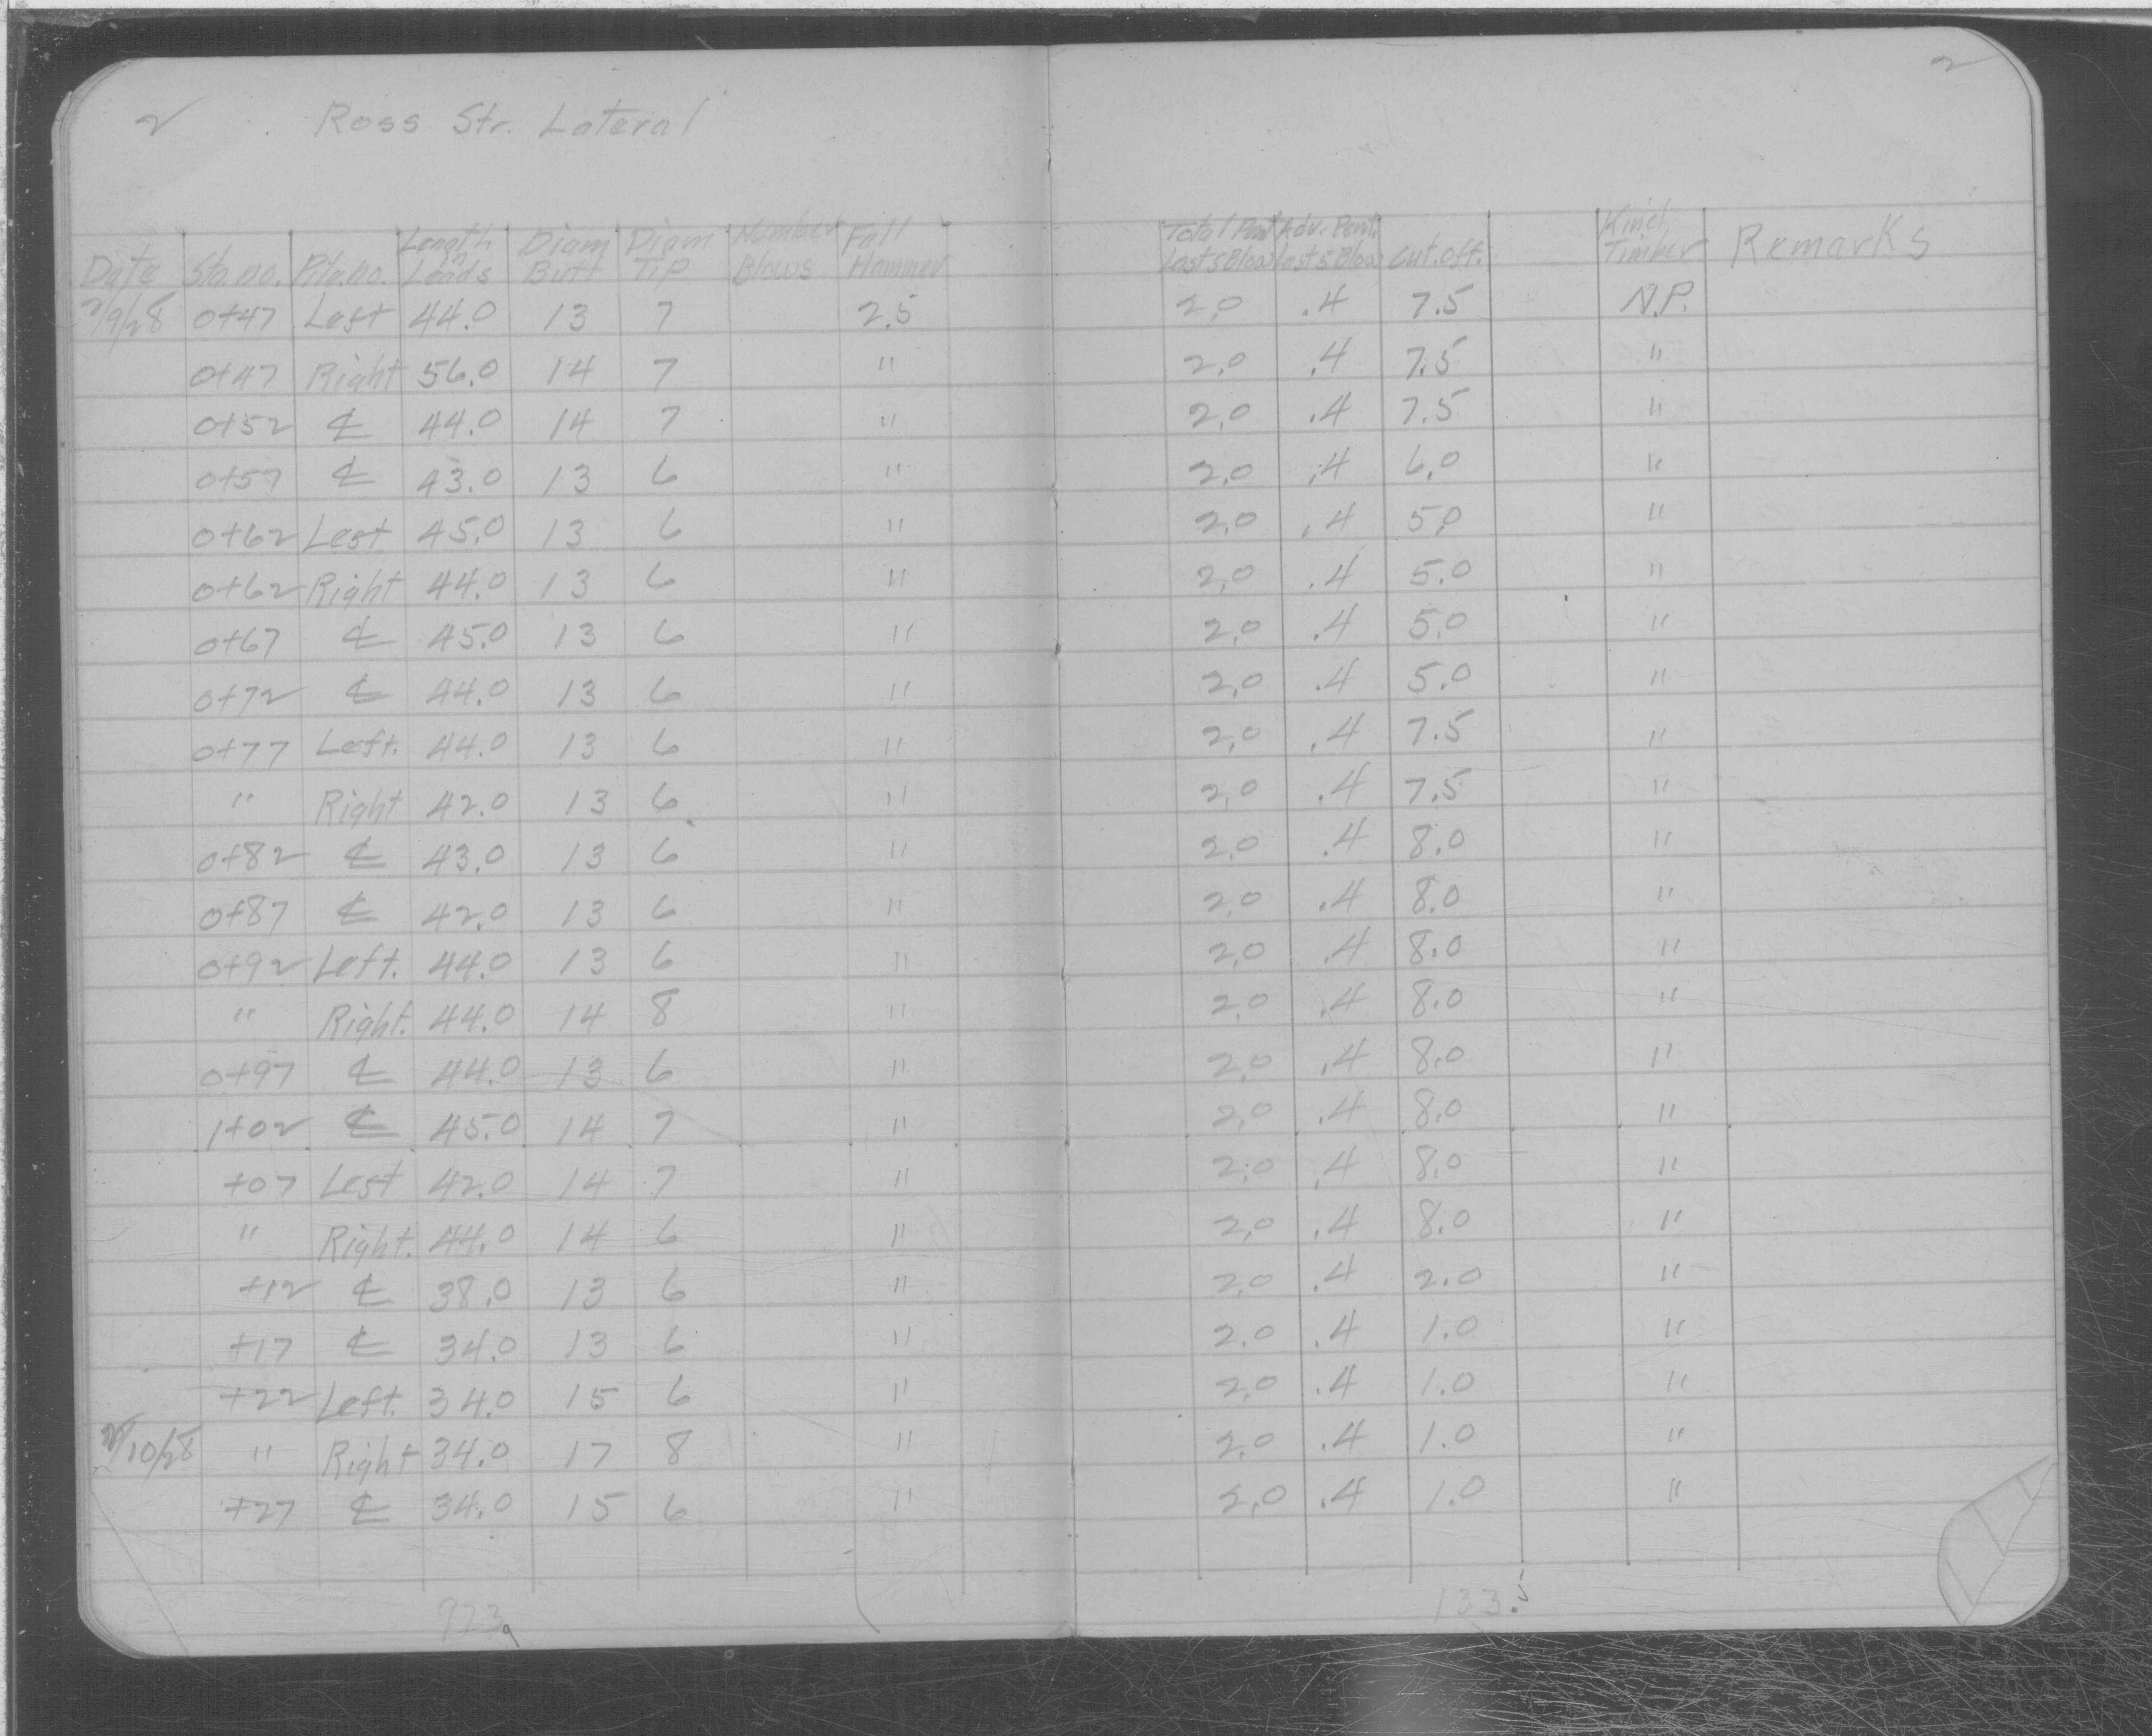 2 Ross Str. Lateral 2
Date Sta.no. Pile.no. Length in Leads Diam Butt Diam Tip Number Blows Fall Hammer Total Pent Last 5 Blow Adv. Pent. Last 5 Blow Cut.off. Kind Timber Remarks
2/9/28 0+47 Left 44.0 13 7 2.5 2.0 .4 7.5 N.P.
0+47 Right 56.0 14 7 " 2.0 .4 7.5 "
0+52 ℄ 44.0 14 7 " 2.0 .4 7.5 "
0+57 ℄ 43.0 13 6 " 2.0 .4 6.0 "
0+62 Left 45.0 13 6 " 2.0 .4 5.0 "
0+62 Right 44.0 13 6 " 2.0 .4 5.0 "
0+67 ℄ 45.0 13 6 " 2.0 .4 5.0 "
0+72 ℄ 44.0 13 6 " 2.0 .4 5.0 "
0+77 Left. 44.0 13 6 " 2.0 .4 7.5 "
" Right 42.0 13 6 " 2.0 .4 7.5 "
0+82 ℄ 43.0 13 6 " 2.0 .4 8.0 "
0+87 ℄ 42.0 13 6 " 2.0 .4 8.0 "
0+92 Left. 44.0 13 6 " 2.0 .4 8.0 "
" Right. 44.0 14 8 " 2.0 .4 8.0 "
0+97 ℄ 44.0 13 6 " 2.0 .4 8.0 "
1+02 ℄ 45.0 14 7 " 2.0 .4 8.0 "
+07 Left 42.0 14 7 " 2.0 .4 8.0 "
" Right. 44.0 14 6 " 2.0 .4 8.0 "
+12 ℄ 38.0 13 6 " 2.0 .4 2.0 "
+17 ℄ 34.0 13 6 " 2.0 .4 1.0 "
+22 Left. 34.0 15 6 " 2.0 .4 1.0 "
2/10/28 " Right 34.0 17 8 " 2.0 .4 1.0 "
+27 ℄ 34.0 15 6 " 2.0 .4 1.0 "
973. 133.5